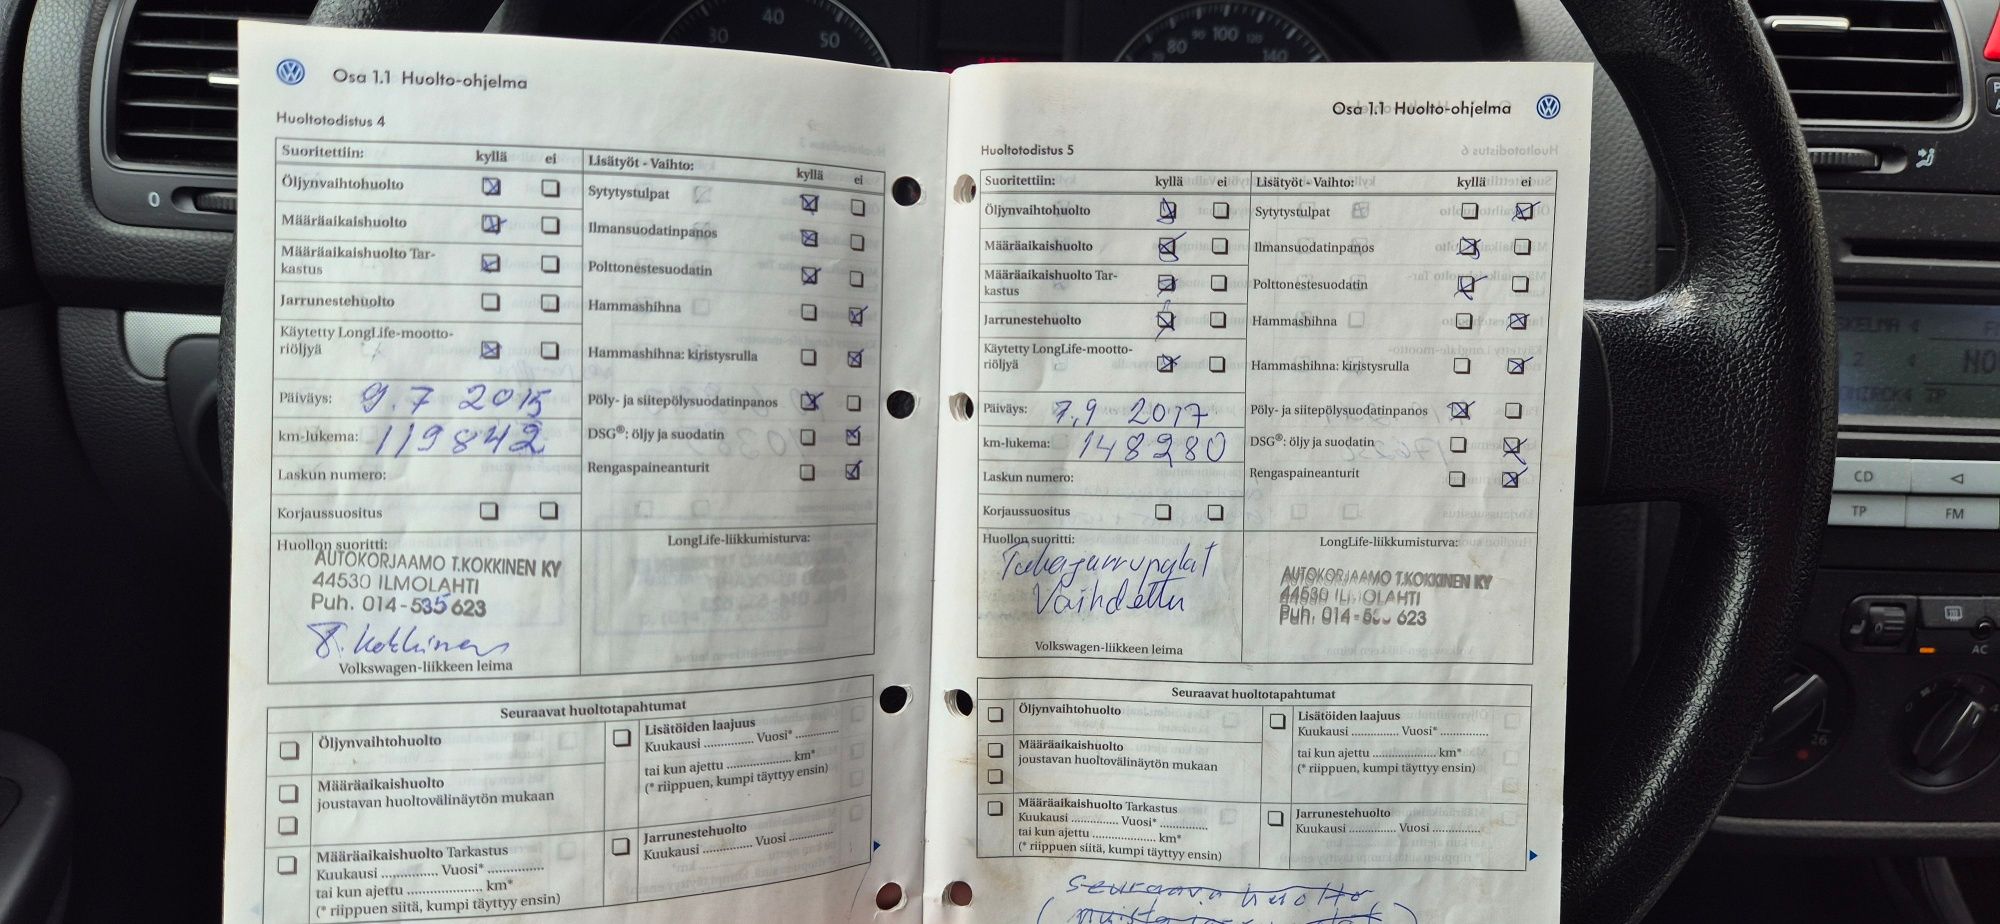 Osa 1.1 Huolto-ohjelma
Huoltotodistus 4
Suoritettiin: kyllä ei
Öljynvaihtohuolto
Määräaikaishuolto
Määräaikaishuolto Tar-
kastus
Jarrunestehuolto
Käytetty LongLife-mootto-
riöljyä
Päiväys: 9.7 2015
km-lukema: 119842
Laskun numero:
Korjaussuositus
Lisätyöt - Vaihto: kyllä ei
Sytytystulpat
Ilmansuodatinpanos
Polttonestesuodatin
Hammashihna
Hammashihna: kiristysrulla
Pöly- ja siitepölysuodatinpanos
DSG®: öljy ja suodatin
Rengaspaineanturit
Huollon suoritti:
AUTOKORJAAMO T.KOKKINEN KY
44530 ILMOLAHTI
Puh. 014-535 623
T. Kokkinen
Volkswagen-liikkeen leima
LongLife-liikkumisturva:
Seuraavat huoltotapahtumat
Öljynvaihtohuolto
Määräaikaishuolto
joustavan huoltovälinäytön mukaan
Määräaikaishuolto Tarkastus
Kuukausi .............. Vuosi* ..............
tai kun ajettu ..................... km*
(* riippuen siitä, kumpi täyttyy ensin)
Lisätöiden laajuus
Kuukausi .............. Vuosi* ..............
tai kun ajettu .................... km*
(* riippuen, kumpi täyttyy ensin)
Jarrunestehuolto
Kuukausi .............. Vuosi ..............
Osa 1.1 Huolto-ohjelma
Huoltotodistus 5
Suoritettiin: kyllä ei
Öljynvaihtohuolto
Määräaikaishuolto
Määräaikaishuolto Tar-
kastus
Jarrunestehuolto
Käytetty LongLife-mootto-
riöljyä
Päiväys: 7.9 2017
km-lukema: 148280
Laskun numero:
Korjaussuositus
Lisätyöt - Vaihto: kyllä ei
Sytytystulpat
Ilmansuodatinpanos
Polttonestesuodatin
Hammashihna
Hammashihna: kiristysrulla
Pöly- ja siitepölysuodatinpanos
DSG®: öljy ja suodatin
Rengaspaineanturit
Huollon suoritti:
Takajarrupalat
Vaihdettu
Volkswagen-liikkeen leima
LongLife-liikkumisturva:
AUTOKORJAAMO T.KOKKINEN KY
44530 ILMOLAHTI
Puh. 014-535 623
Seuraavat huoltotapahtumat
Öljynvaihtohuolto
Määräaikaishuolto
joustavan huoltovälinäytön mukaan
Määräaikaishuolto Tarkastus
Kuukausi .............. Vuosi* ..............
tai kun ajettu .................... km*
(* riippuen siitä, kumpi täyttyy ensin)
Lisätöiden laajuus
Kuukausi .............. Vuosi* ..............
tai kun ajettu ................ km*
(* riippuen, kumpi täyttyy ensin)
Jarrunestehuolto
Kuukausi .............. Vuosi ..............
seuraava huolto
30 40 50
80 100 120 140
0
NO
CD
TP FM
AC